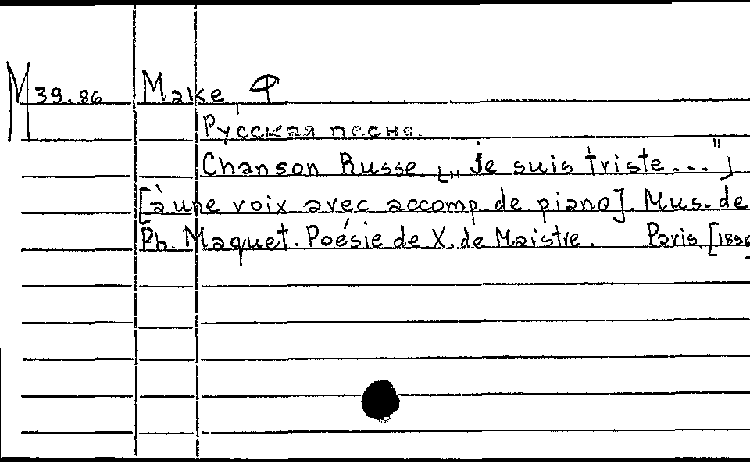 М 39.86 Маке, Ф
Русская песня.
Chanson Russe [„Je suis triste..."]
[à une voix avec accomp. de piano]. Mus. de
Ph. Maquet. Poésie de X. de Maistre. Paris, [1896